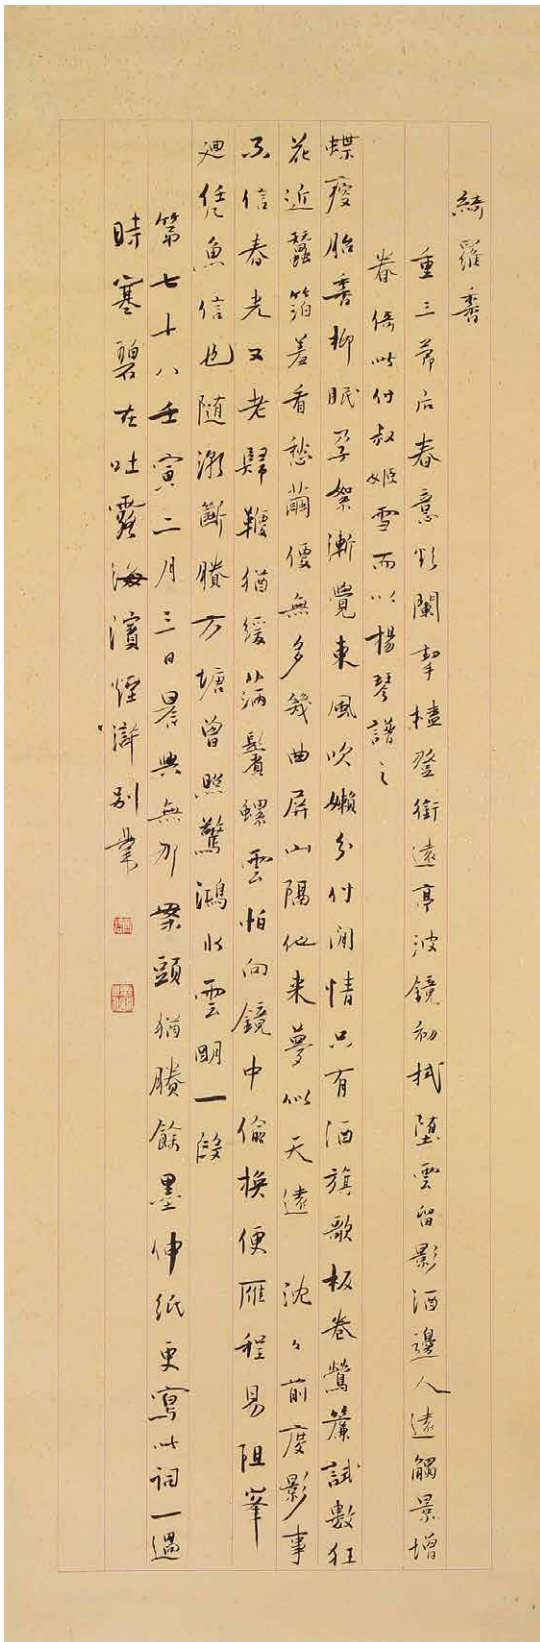 綺羅香
重三節后春意欲闌挈榼登銜遠亭波鏡初拭墮雲留影酒邊人遠觸景增
眷倚此付叔姬雪而以楊琴譜之
蝶瘦胎香柳眠孕絮漸覺東風吹嬾分付閒情只有酒旗歌板卷鶯簾試數狂
花近蠶箔羞看愁繭便無多幾曲屏山隔他來夢似天遠 沈々前度影事
不信春光又老歸鞭猶緩 鬢螺雲怕向鏡中偷換便雁程易阻峯
迴任魚信也随潮斷賸方塘曾照驚鴻水雲明一段
第七十八壬寅二月三日晨興無那案頭猶賸餘墨伸紙更寫此詞一過
時寒碧在吐露海濱煙滸別業